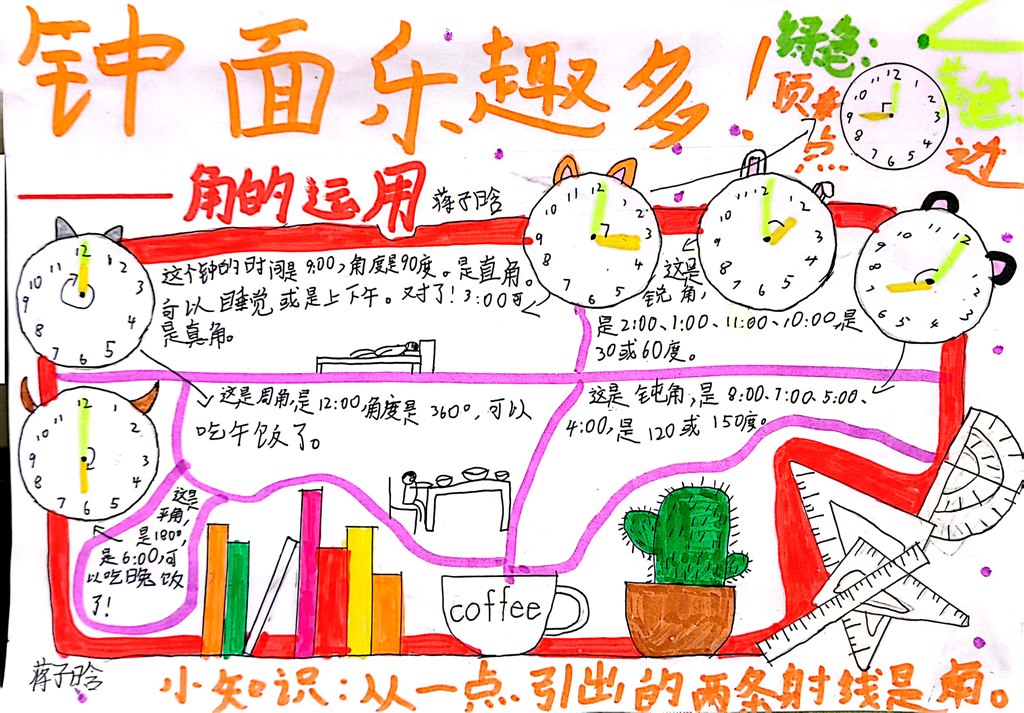 钟面乐趣多！
绿色：
顶点
黄色：
边
角的运用
蒋子晗
这个钟的时间是9:00，角度是90度。是直角。
可以睡觉或是上下午。对了！3:00可
是真角。
这是
锐角，
是2:00、1:00、11:00、10:00，是
30或60度。
这是周角，是12:00，角度是360°，可以
吃午饭了。
这是钝角，是8:00、7:00、5:00、
4:00，是120或150度。
这是
平角，
是180°，
是6:00，可
以吃晚饭
了！
coffee
蒋子晗
小知识：从一点引出的两条射线是角。